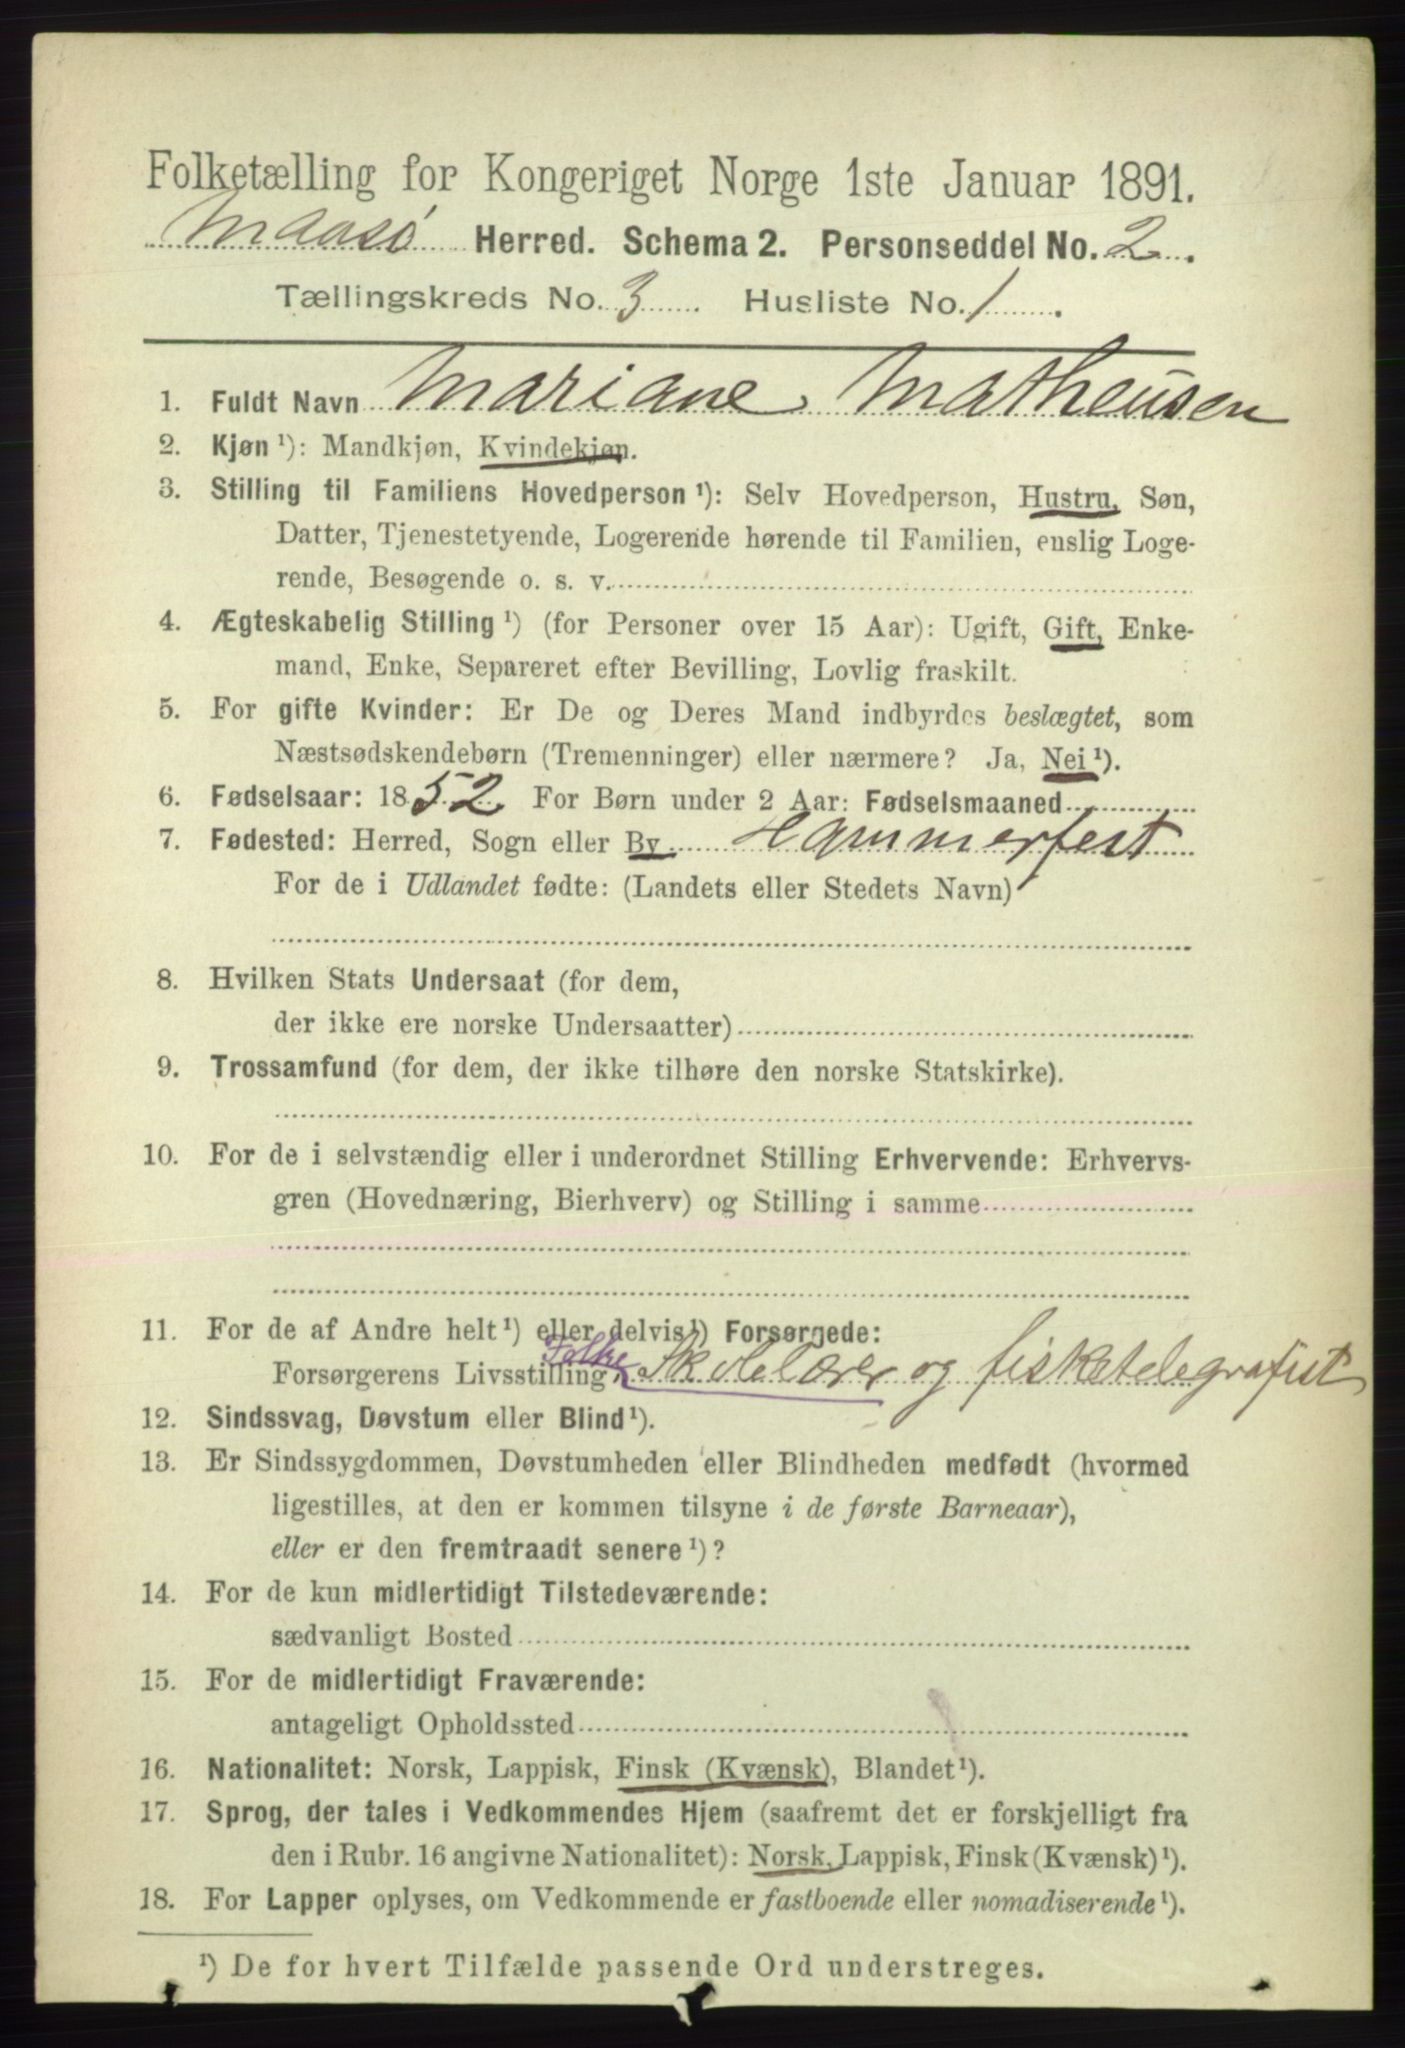 Folketælling for Kongeriget Norge 1ste Januar 1891.
Maasø Herred. Schema 2. Personseddel No. 2.
Tællingskreds No. 3 Husliste No. 1.
1. Fuldt Navn Mariane Matheusen
2. Kjøn ¹): Mandkjøn, Kvindekjøn.
3. Stilling til Familiens Hovedperson ¹): Selv Hovedperson, Hustru, Søn,
Datter, Tjenestetyende, Logerende hørende til Familien, enslig Loge-
rende, Besøgende o. s. v.
4. Ægteskabelig Stilling ¹) (for Personer over 15 Aar): Ugift, Gift, Enke-
mand, Enke, Separeret efter Bevilling, Lovlig fraskilt.
5. For gifte Kvinder: Er De og Deres Mand indbyrdes beslægtet, som
Næstsødskendebørn (Tremenninger) eller nærmere? Ja, Nei ¹).
6. Fødselsaar: 1852 For Børn under 2 Aar: Fødselsmaaned
7. Fødested: Herred, Sogn eller By Hammerfest
For de i Udlandet fødte: (Landets eller Stedets Navn)
8. Hvilken Stats Undersaat (for dem,
der ikke ere norske Undersaatter)
9. Trossamfund (for dem, der ikke tilhøre den norske Statskirke).
10. For de i selvstændig eller i underordnet Stilling Erhvervende: Erhvervs-
gren (Hovednæring, Bierhverv) og Stilling i samme
11. For de af Andre helt ¹) eller delvis ¹) Forsørgede:
Folke
Forsørgerens Livsstilling Skolelærer og fisketelegrafist
12. Sindssvag, Døvstum eller Blind ¹).
13. Er Sindssygdommen, Døvstumheden eller Blindheden medfødt (hvormed
ligestilles, at den er kommen tilsyne i de første Barneaar),
eller er den fremtraadt senere ¹)?
14. For de kun midlertidigt Tilstedeværende:
sædvanligt Bosted
15. For de midlertidigt Fraværende:
antageligt Opholdssted
16. Nationalitet: Norsk, Lappisk, Finsk (Kvænsk), Blandet ¹).
17. Sprog, der tales i Vedkommendes Hjem (saafremt det er forskjelligt fra
den i Rubr. 16 angivne Nationalitet): Norsk, Lappisk, Finsk (Kvænsk) ¹).
18. For Lapper oplyses, om Vedkommende er fastboende eller nomadiserende ¹).
¹) De for hvert Tilfælde passende Ord understreges.